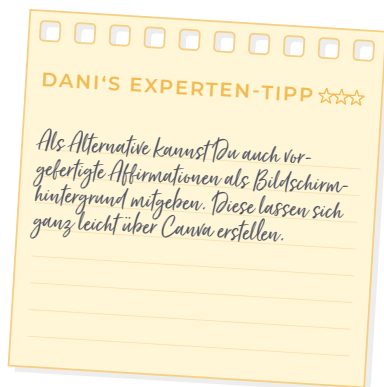 DANI‘S EXPERTEN-TIPP
Als Alternative kannst Du auch vor-
gefertigte Affirmationen als Bildschirm-
hintergrund mitgeben. Diese lassen sich
ganz leicht über Canva erstellen.